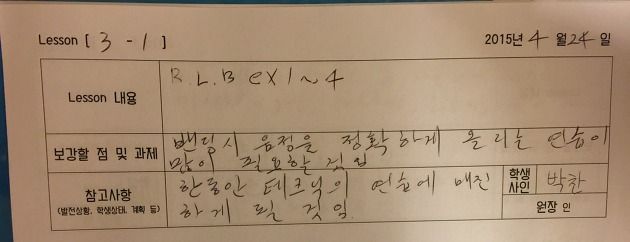 Lesson [ 3 - 1 ] 2015년 4 월 24 일
Lesson 내용
R.L.B ex 1~4
보강할 점 및 과제
벤딩시 음정을 정확하게 올리는 연습이
많이 필요할 것임
참고사항
(발전상황, 학생상태, 계획 등)
한동안 테크닉의 연습에 매진
하게 될 것임.
학생
사인
박찬
원장 인